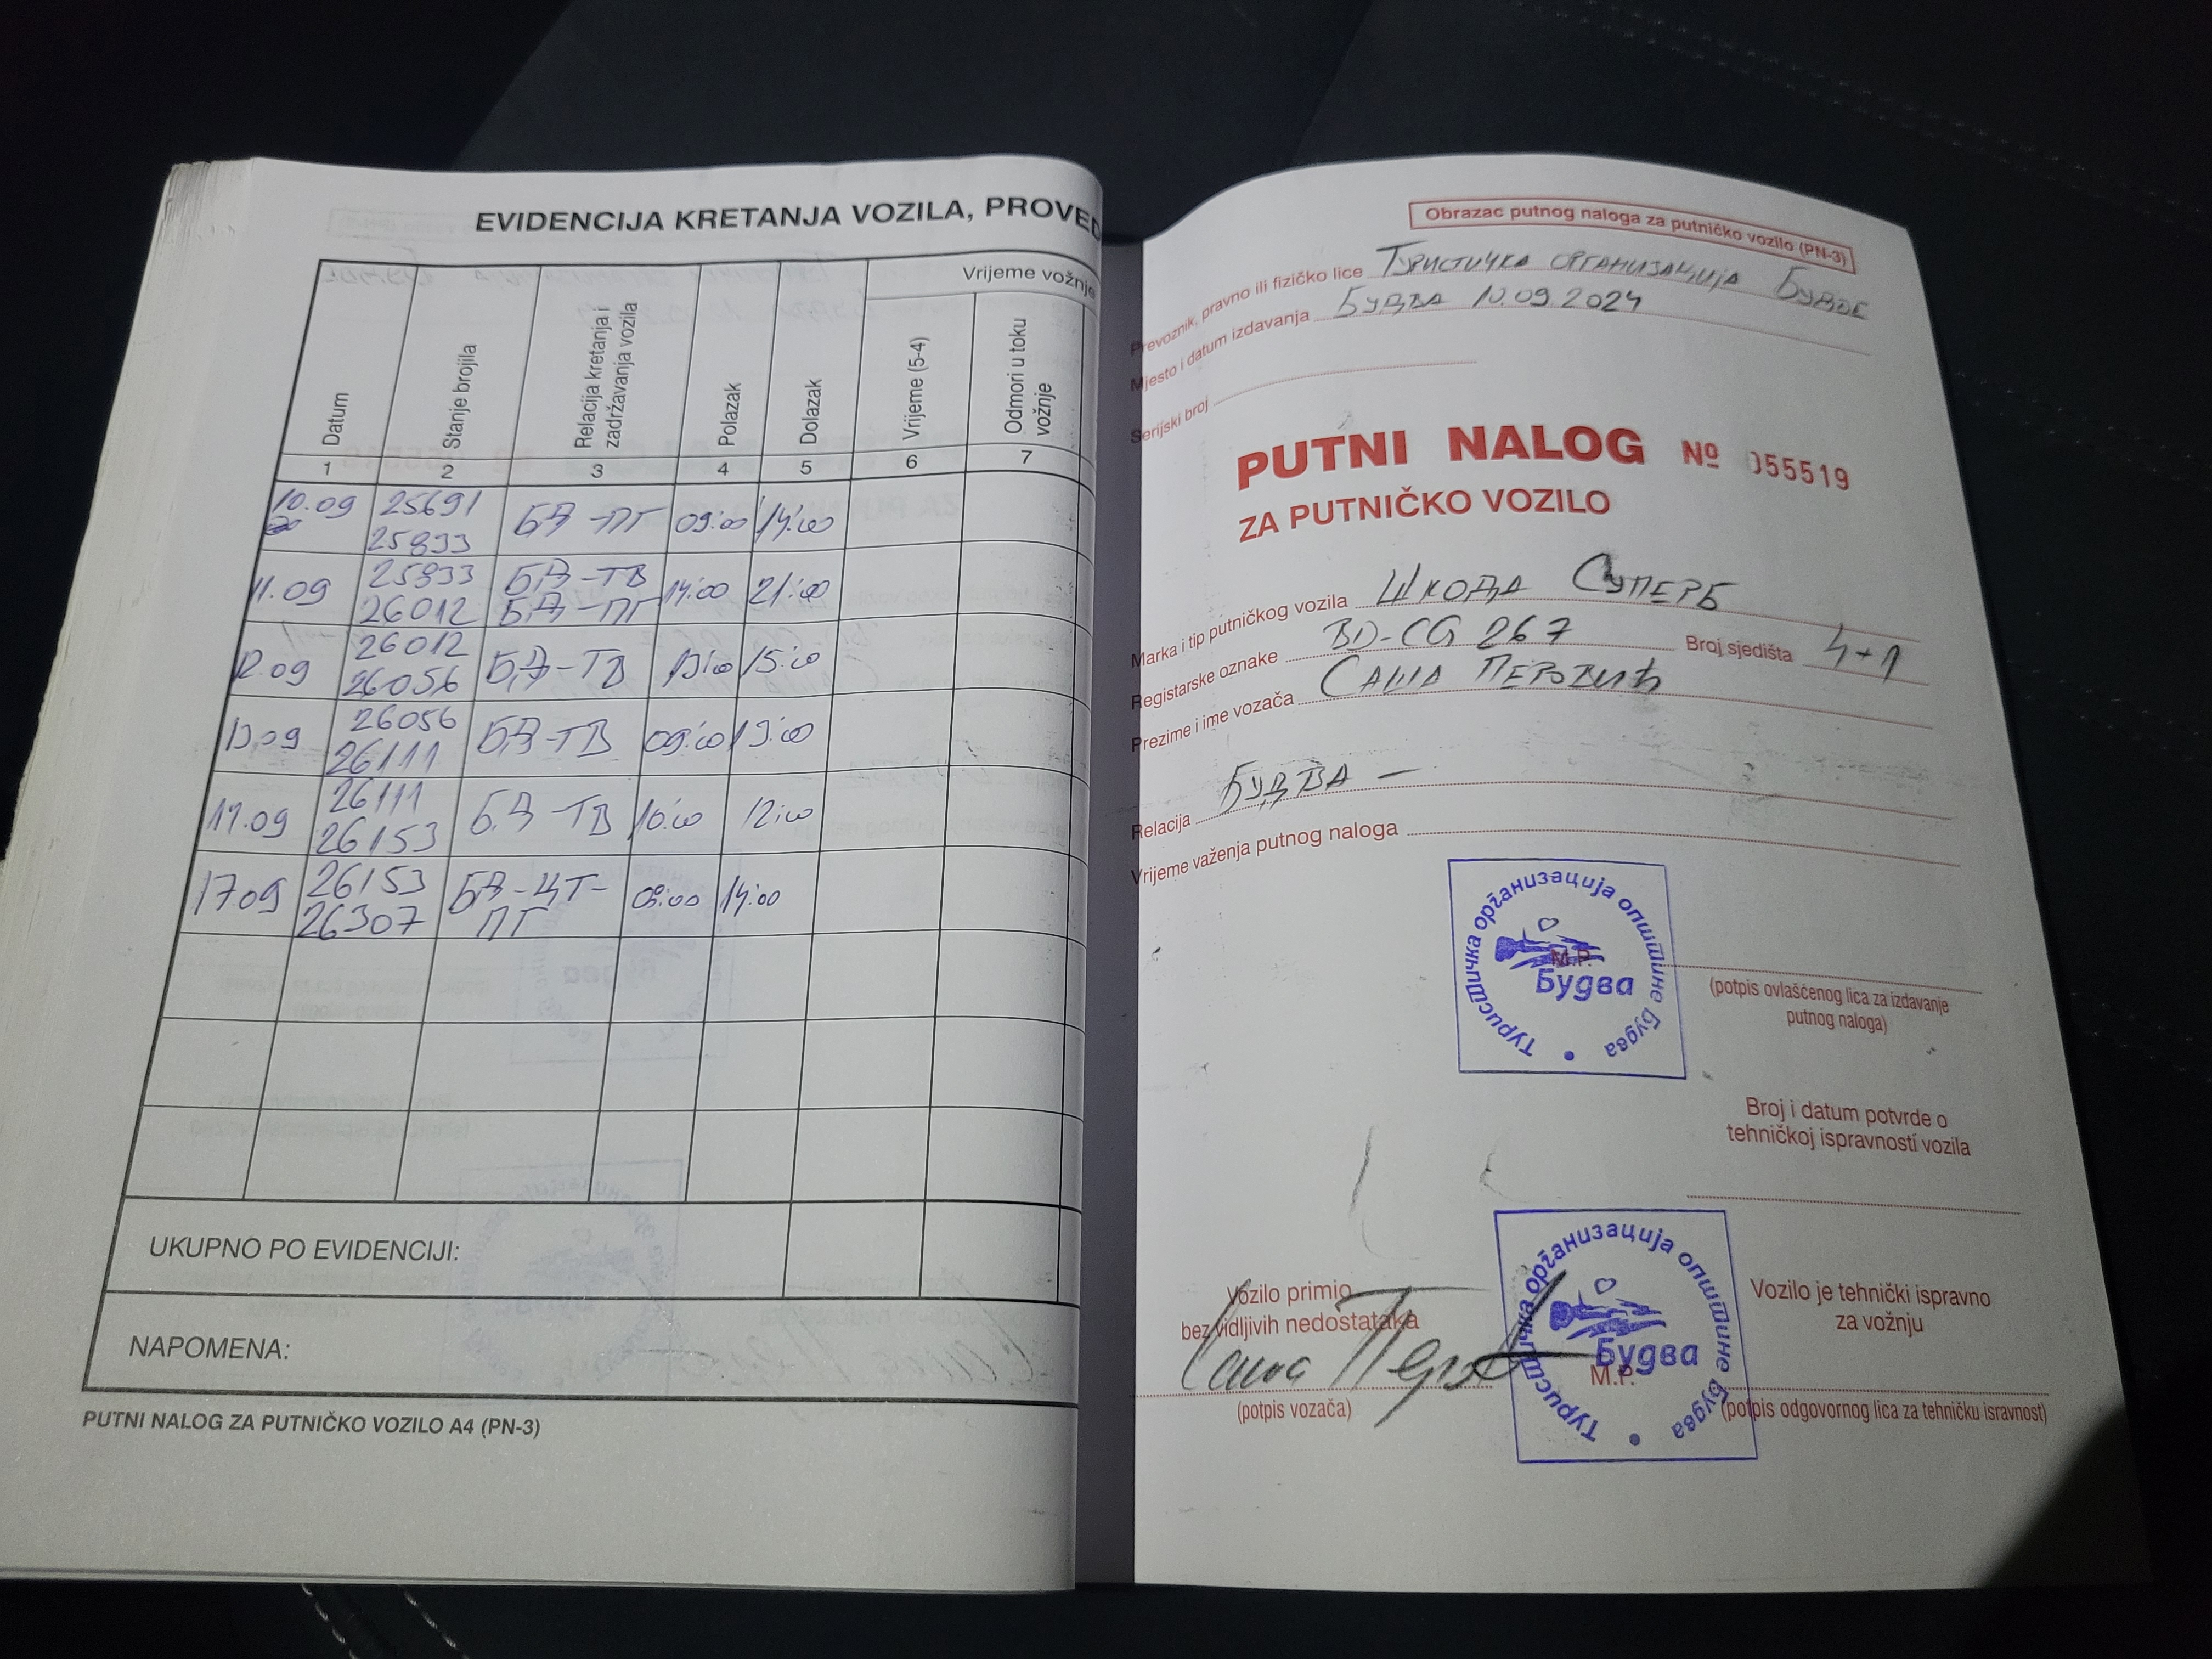 EVIDENCIJA KRETANJA VOZILA, PROVED
Vrijeme vožnje
Datum
Stanje brojila
Relacija kretanja i
zadržavanja vozila
Polazak
Dolazak
Vrijeme (5-4)
Odmori u toku
vožnje
1 2 3 4 5 6 7
10.09 25691 БД-ПГ 09:00 14:00
25833
11.09 25833 БД-ТВ 14:00 21:00
26012 БД-ПГ
12.09 26012 БД-ТВ 13:00 15:00
26056
13.09 26056 БД-ТВ 09:00 13:00
26111
26111 БД-ТВ 10:00 12:00
26153
17.09 26153 БД-ЦТ- 09:00 14:00
26307 ПГ
UKUPNO PO EVIDENCIJI:
NAPOMENA:
PUTNI NALOG ZA PUTNIČKO VOZILO A4 (PN-3)
Obrazac putnog naloga za putničko vozilo (PN-3)
Prevoznik, pravno ili fizičko lice Туристичка организација Будве
Mjesto i datum izdavanja Будва 10.09.2024
Serijski broj
PUTNI NALOG № 055519
ZA PUTNIČKO VOZILO
Marka i tip putničkog vozila Шкода Суперб
Registarske oznake BD-CG 267 Broj sjedišta 4+1
Prezime i ime vozača Саша Перовић
Relacija Будва –
Vrijeme važenja putnog naloga
Туристичка организација општине Будва
Будва
M.P.
(potpis ovlašćenog lica za izdavanje
putnog naloga)
Broj i datum potvrde o
tehničkoj ispravnosti vozila
Vozilo primio
bez vidljivih nedostataka
Саша
(potpis vozača)
Туристичка организација општине Будва
Будва
M.P.
Vozilo je tehnički ispravno
za vožnju
(potpis odgovornog lica za tehničku isravnost)